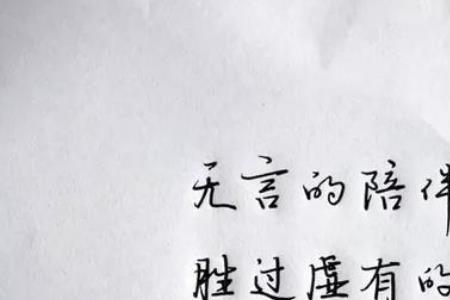 无言的陪伴
胜过虚有的